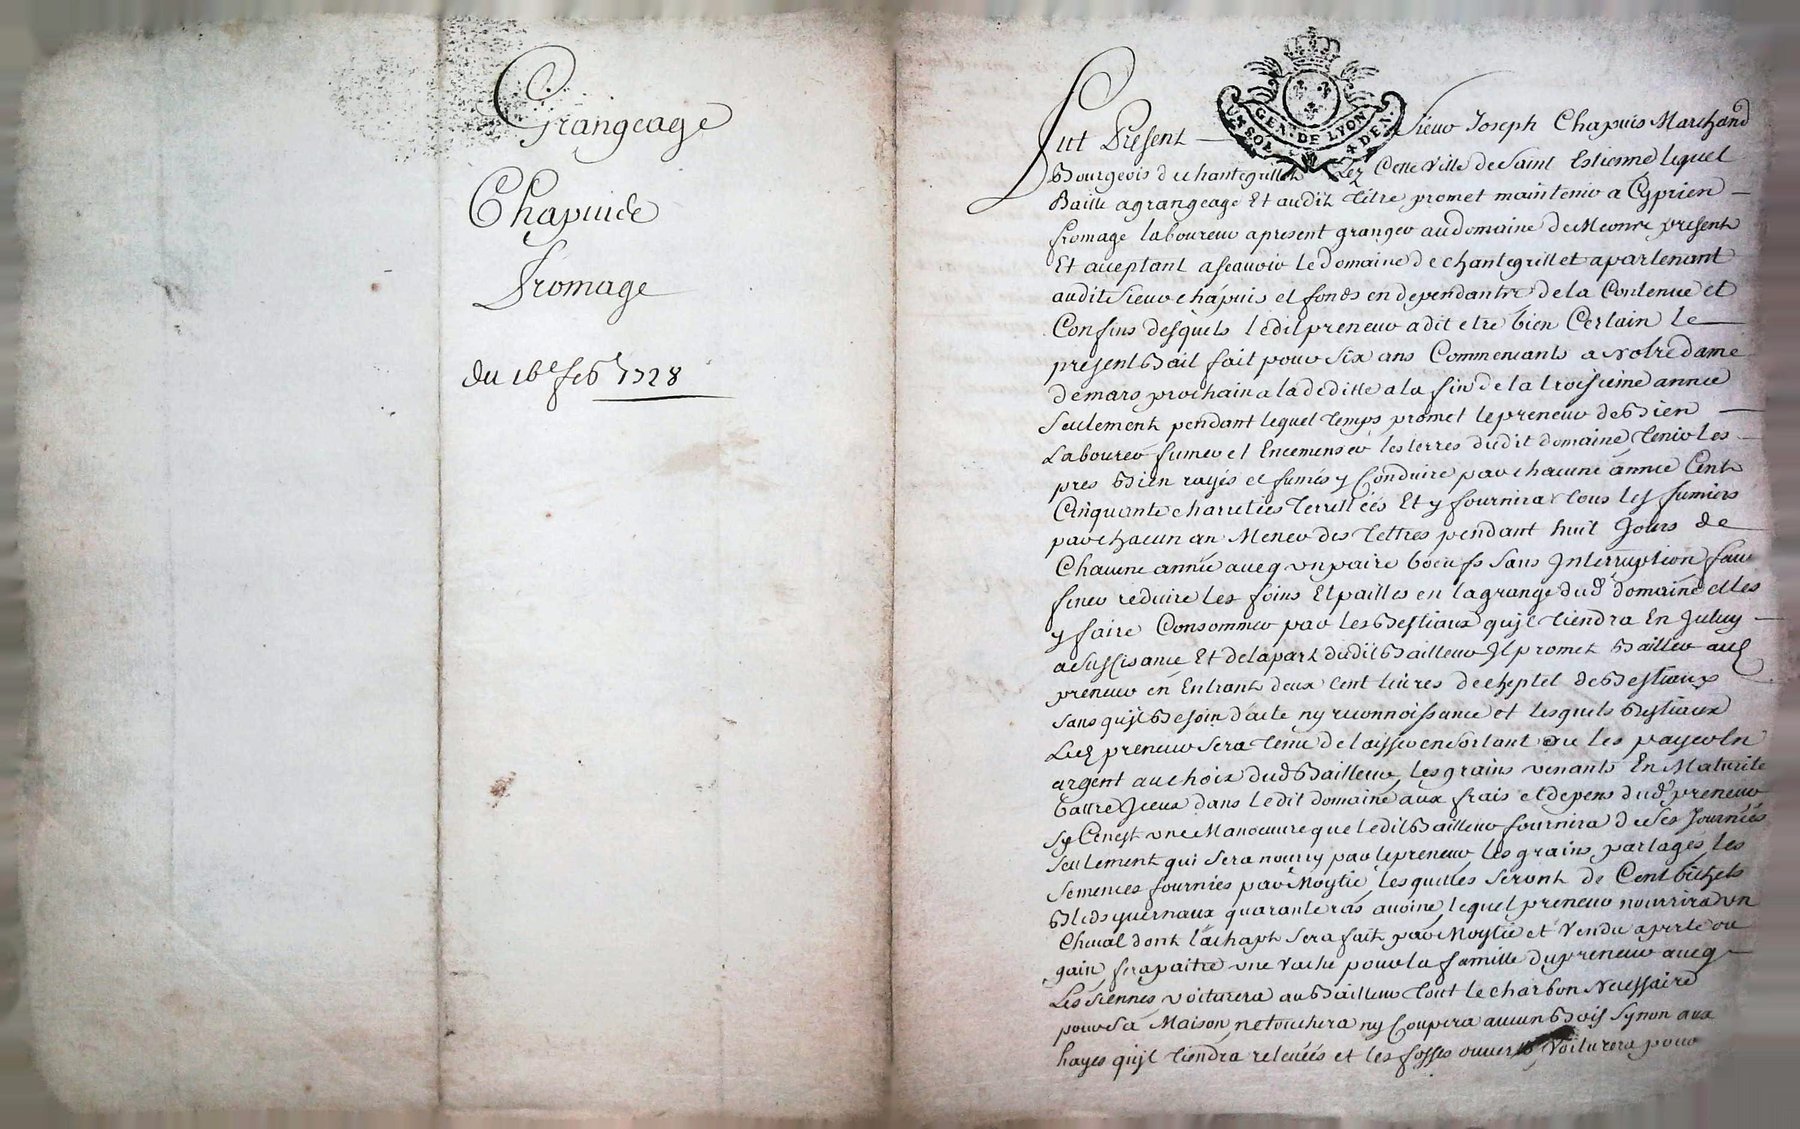 Grangeage
Chapuis de
Fromage
du 16e feb 1728
UN SOL GEN. DE LYON 4 DEN.
Fut Present Sieur Joseph Chapuis Marchand
Bourgeois de chantegrillet Lez Cette Ville de Saint Estienne lequel
Baille agrangeage Et audit tiltre promet maintenir a Cyprien
fromage laboureur apresent granger audomaine de Meonse present
Et acceptant ascavoir le domaine de chantegrillet apartenant
audit Sieur chapuis et fonds en dependants de la Contenue et
Confins desquels ledit preneur a dit etre bien Certain le
present Bail fait pour six ans Commencants a Notre dame
de mars prochain a la deditte a la fin de la troisieme annee
seulement pendant lequel temps promet le preneur de Bien
Labourer fumer et Encemenser les terres dudit domaine tenir les
pres Bien rayés et fumés y Conduire par chacune année Cent
Cinquante charretées terrillées Et y fournira tous les fumiers
par chacun an Mener des tettres pendant huit Jours de
Chacune année avecq un paire boeufs sans Interruption faire
finer reduire les foins Et pailles en la grange dud domaine et les
y faire Consommer par les Bestiaux qujl tiendra En Jceluy
a suffisance Et de la part dudit Bailleur Jl promet Bailler aud
preneur en Entrant deux cent livres de cheptel de Bestiaux
sans qujl Besoin d'acte ny reconnoissance et lesquels Bestiaux
Led preneur sera tenu de laisser en sortant ou les payer En
argent au choix dud Bailleur, les grains venants En Maturité
battre Jceux dans ledit domaine aux frais et depens dud preneur
sy Cenest une Manoeuvre que ledit Bailleur fournira de ses Journées
seulement qui sera nourry par le preneur les grains partagés les
semences fournies par Moytié lesquelles seront de Cent bichets
Bleds yvernaux quarante ras avoine lequel preneur nourrira un
Cheval dont l'achapt sera fait par Moytié et Vendu a perte ou
gain, fera paitre une vache pour la famille du preneur avecq
Les siennes voiturera au Bailleur tout le charbon Necessaire
pour sa Maison, ne touchera ny Coupera aucun Bois synon aux
hayes qujl tiendra relevées et les fosses ouverts, Voiturera pour